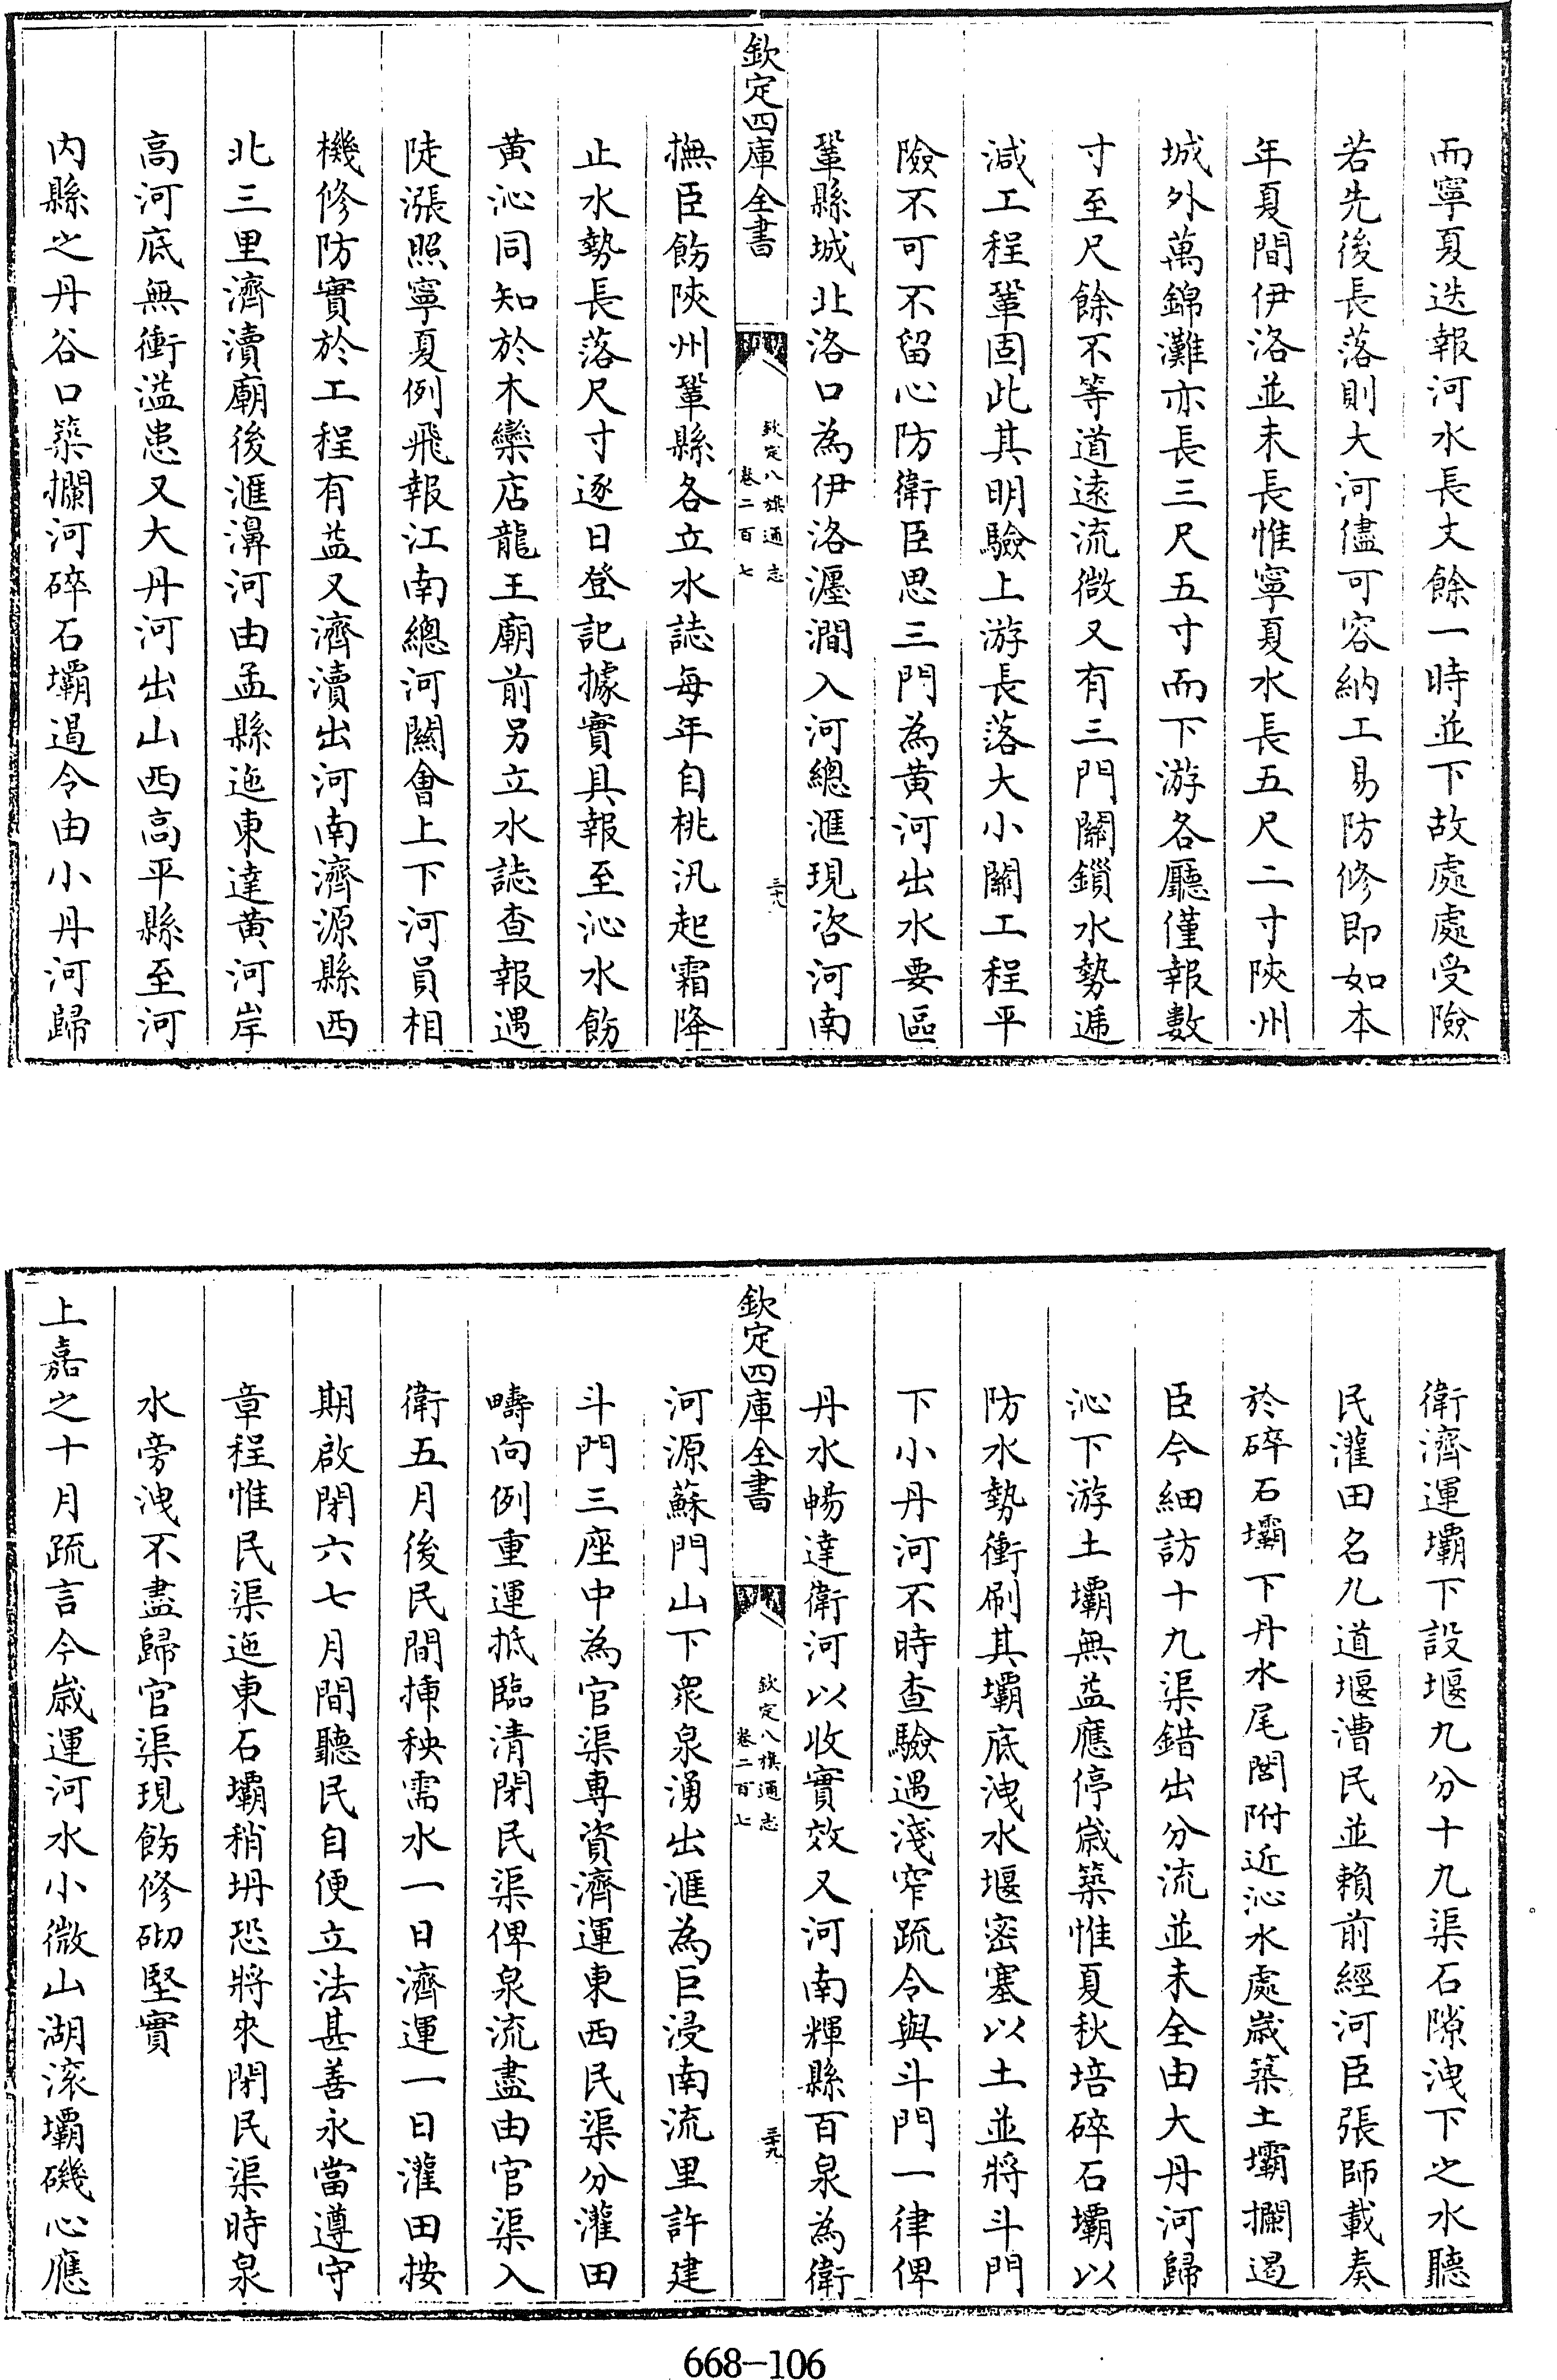 而寧夏迭報河水長丈餘一時並下故處處受險
若先後長落則大河儘可容納工易防修即如本
年夏間伊洛並未長惟寧夏水長五尺二寸陜州
城外萬錦灘亦長三尺五寸而下游各廳僅報數
寸至尺餘不等道遠流微又有三門關鎖水勢遞
減工程鞏固此其明驗上游長落大小關工程平
險不可不留心防衛臣思三門為黄河出水要區
鞏縣城北洛口為伊洛瀍澗入河總滙現咨河南
欽定四庫全書
欽定八旗通志
卷二百七
三十八
撫臣飭陜州鞏縣各立水誌每年自桃汛起霜降
止水勢長落尺寸逐日登記據實具報至沁水飭
黄沁同知於木欒店龍王廟前另立水誌查報遇
陡漲照寧夏例飛報江南總河關會上下河員相
機修防實於工程有益又濟瀆出河南濟源縣西
北三里濟瀆廟後滙濝河由孟縣迤東達黄河岸
高河底無衝溢患又大丹河出山西高平縣至河
内縣之丹谷口築攔河碎石壩遏令由小丹河歸
衛濟運壩下設堰九分十九渠石隙洩下之水聽
民灌田名九道堰漕民並賴前經河臣張師載奏
於碎石壩下丹水尾閭附近沁水處歲築土壩攔遏
臣今細訪十九渠錯出分流並未全由大丹河歸
沁下游土壩無益應停歲築惟夏秋培碎石壩以
防水勢衝刷其壩底洩水堰密塞以土並將斗門
下小丹河不時查驗遇淺窄疏令與斗門一律俾
丹水暢達衛河以收實效又河南輝縣百泉為衛
欽定四庫全書
欽定八旗通志
卷二百七
三十九
河源蘇門山下衆泉湧出滙為巨浸南流里許建
斗門三座中為官渠專資濟運東西民渠分灌田
疇向例重運抵臨清閉民渠俾泉流盡由官渠入
衛五月後民間揷秧需水一日濟運一日灌田按
期啟閉六七月間聽民自便立法甚善永當遵守
章程惟民渠迤東石壩稍坍恐將來閉民渠時泉
水旁洩不盡歸官渠現飭修砌堅實
上嘉之十月疏言今歲運河水小微山湖滚壩磯心應
668-106